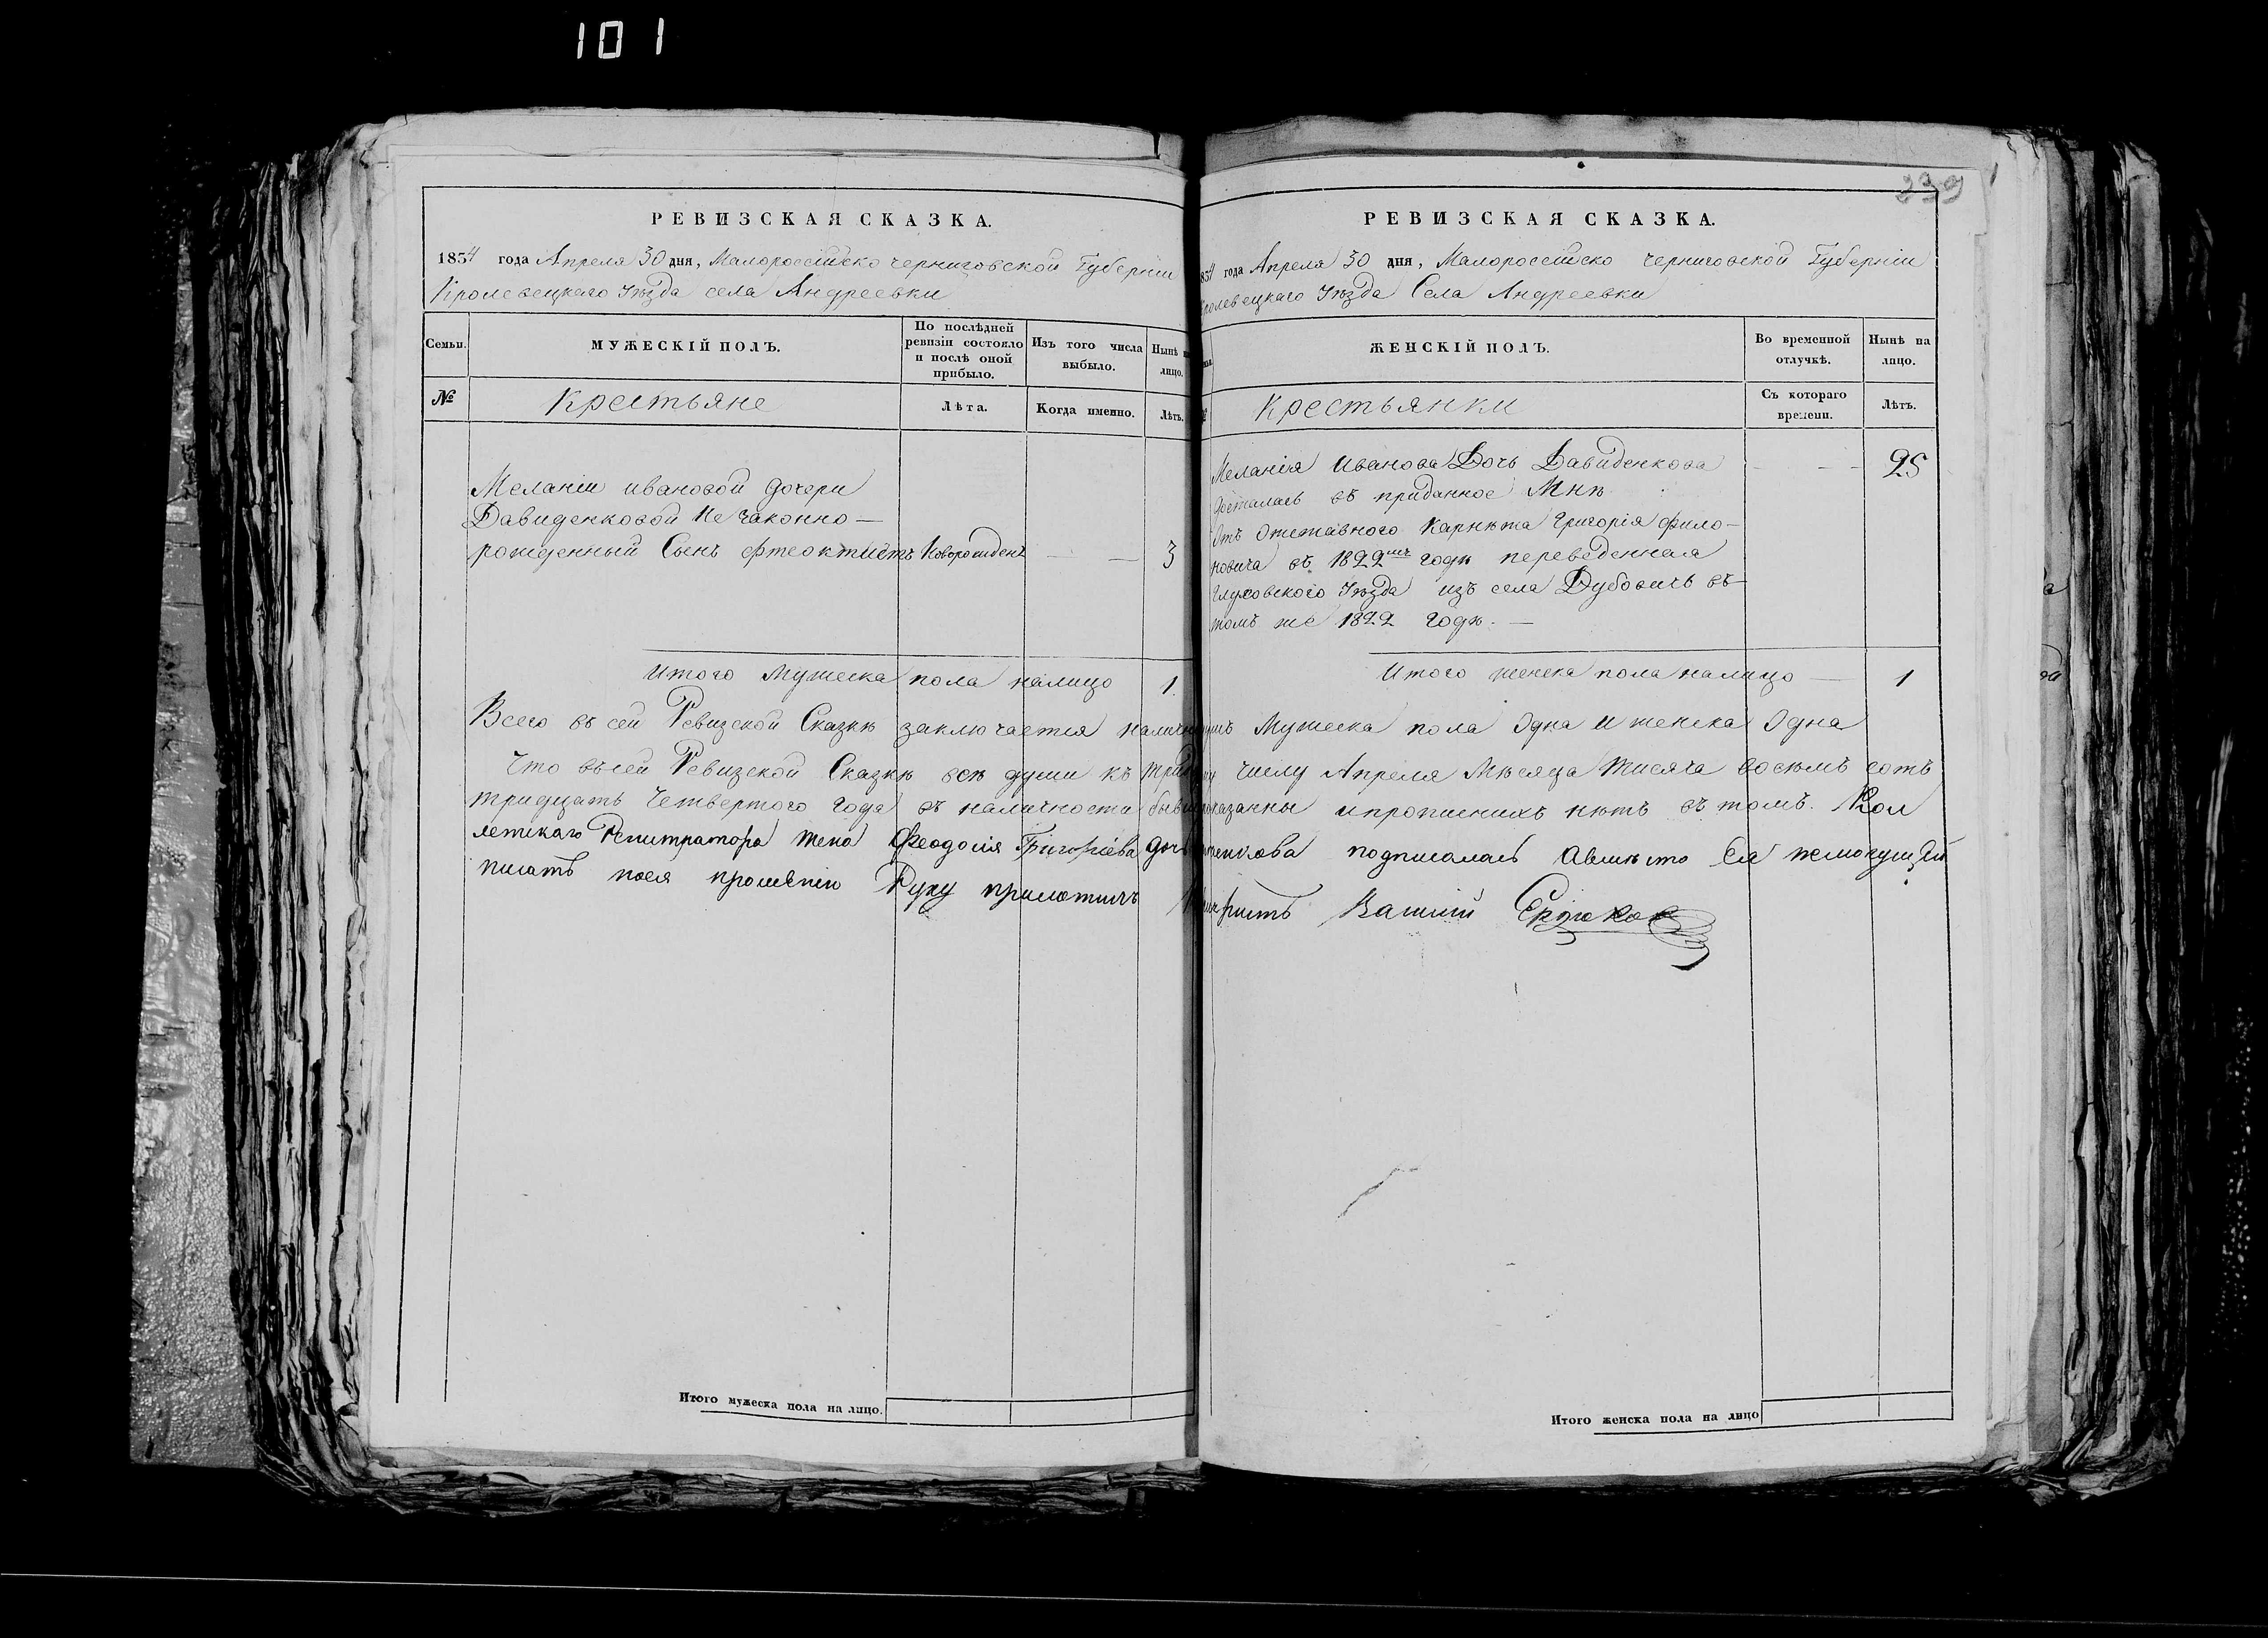 101
239
РЕВИЗСКАЯ СКАЗКА.
1834 года Апреля 30 дня, Малороссійско черниговской Губерніи
Кролевецкаго Уѣзда села Андреевки
Семьи.
МУЖЕСКІЙ ПОЛЪ.
По послѣдней ревизіи состояло и послѣ оной прибыло.
Изъ того числа выбыло.
Нынѣ на лицо.
№
Крестьяне
Лѣта.
Когда именно.
Лѣтъ.
Меланіи ивановой дочери
Давиденковой Не законно—
рожденный Сынъ фтеоктистъ Новорожденъ — — 3
Итого Мужеска пола налицо 1
РЕВИЗСКАЯ СКАЗКА.
1834 года Апреля 30 дня, Малороссійско черниговской Губерніи
Кролевецкаго Уѣзда Села Андреевки
ЖЕНСКІЙ ПОЛЪ.
Во временной отлучкѣ.
Нынѣ на лицо.
Крестьянки
Съ котораго времени.
Лѣтъ.
Меланія Иванова Дочь Давиденкова — — 25
досталась въ приданное Мнѣ
Отъ Отставного Карнѣта Григорія фило—
новича въ 1822мъ годѣ переведенная
Глуховского Уѣзда изъ села Дубовичь въ
томъ же 1822 годѣ. —
Итого женска пола налицо — 1
Всего въ сей Ревизской Сказкѣ заключается Мужеска пола Одна и женска Одна
Что въсей Ревизской Сказкѣ всѣ души къ числу Апреля Мѣсяца Тисяча восемъ сотъ
тридцать Четвертого года въ наличности показанны ипрописнихъ нѣтъ въ томъ. Кол
лежскаго Регистратора жена Феодосія Григоріева дочь подписалась Авмѣсто Ея немогущей
писать поея прошенію Руку приложилъ
Итого мужеска пола на лицо.
Итого женска пола на лицо